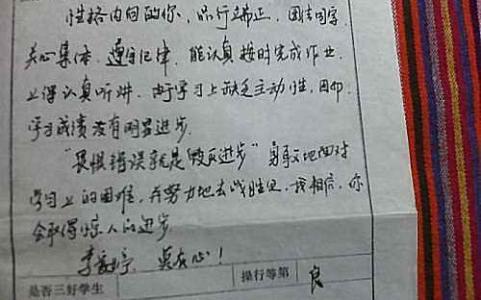 性格内向的你，品行端正，团结同学，
关心集体，遵守纪律，能认真按时完成作业
上课认真听讲，由于学习上缺乏主动性，因而
学习成绩没有明显进步。
"畏惧错误就是毁灭进步" 勇敢地面对
学习上的困难，并努力地去战胜它，我相信，你
会取得惊人的进步
李 莫灰心！
是否三好学生 操行等第 良